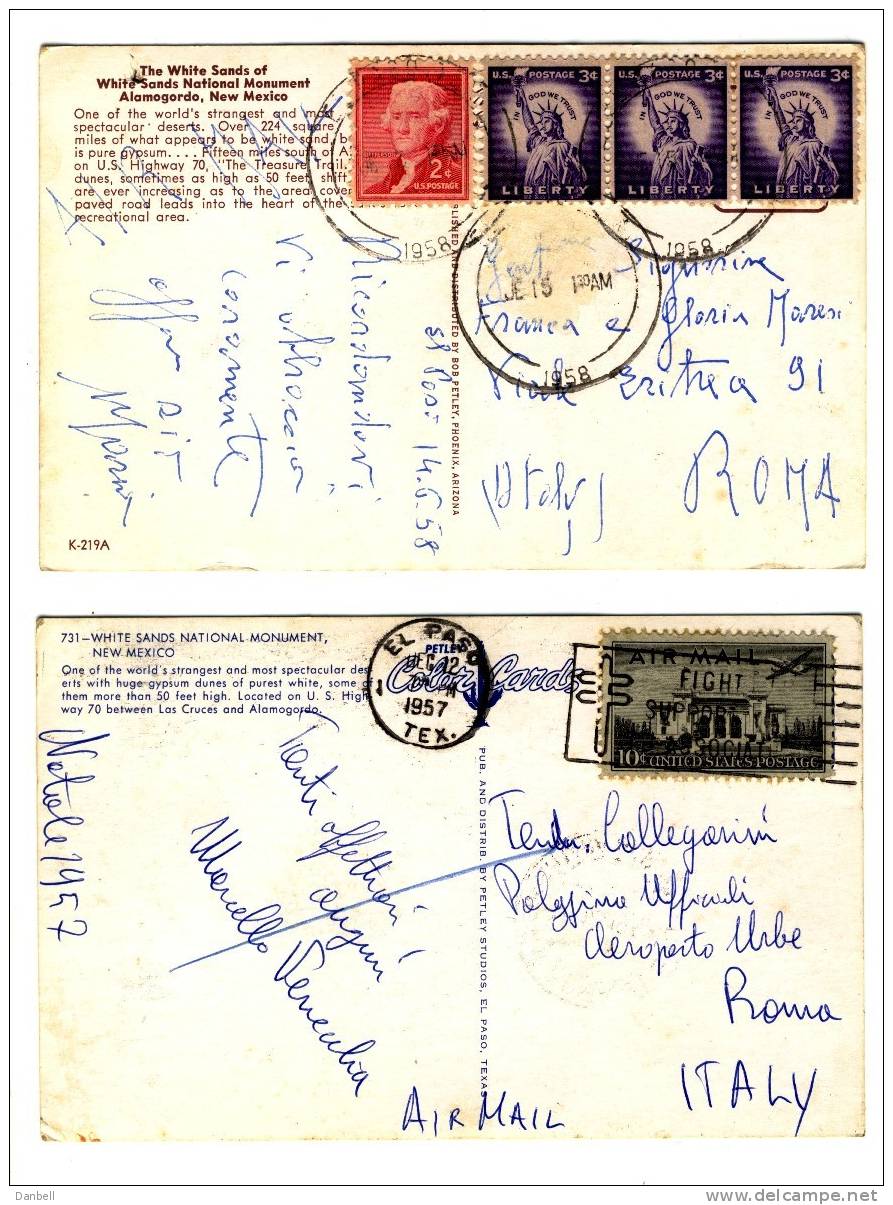 The White Sands of
White Sands National Monument
Alamogordo, New Mexico
One of the world's strangest and most
spectacular deserts. Over 224 square
miles of what appears to be white sand, b
is pure gypsum.... Fifteen miles south of A
on U.S. Highway 70, "The Treasure Trail.
dunes, sometimes as high as 50 feet, shift
are ever increasing as to the area cover
paved road leads into the heart of the
recreational area.
2¢
U.S. POSTAGE
U.S. POSTAGE 3¢
IN GOD WE TRUST
LIBERTY
U.S. POSTAGE 3¢
IN GOD WE TRUST
LIBERTY
U.S. POSTAGE 3¢
IN GOD WE TRUST
LIBERTY
1958
1958
JE 15 1 30 AM
1958
Ricordandovi
Vi abbraccio
caramente
El Paso 14.6.58
BLISHED AND DISTRIBUTED BY BOB PETLEY, PHOENIX, ARIZONA
Signorine
Franca e Gloria Maresi
Viale Eritrea 91
ROMA
Italy
K-219A
731—WHITE SANDS NATIONAL MONUMENT,
NEW MEXICO
One of the world's strangest and most spectacular des-
erts with huge gypsum dunes of purest white, some of
them more than 50 feet high. Located on U. S. High-
way 70 between Las Cruces and Alamogordo.
EL PASO
DEC 12
1957
TEX.
PETLEY
Color Cards
AIR MAIL
FIGHT
SUPPORT
ASSOCIATI
10¢ UNITED STATES POSTAGE
Natale 1957
Tanti affettuosi
auguri
Marcello
PUB. AND DISTRIB. BY PETLEY STUDIOS, EL PASO, TEXAS
Callegarini
Palazzina Ufficiali
Aeroporto Urbe
Roma
ITALY
AIR MAIL
Danbell
www.delcampe.net